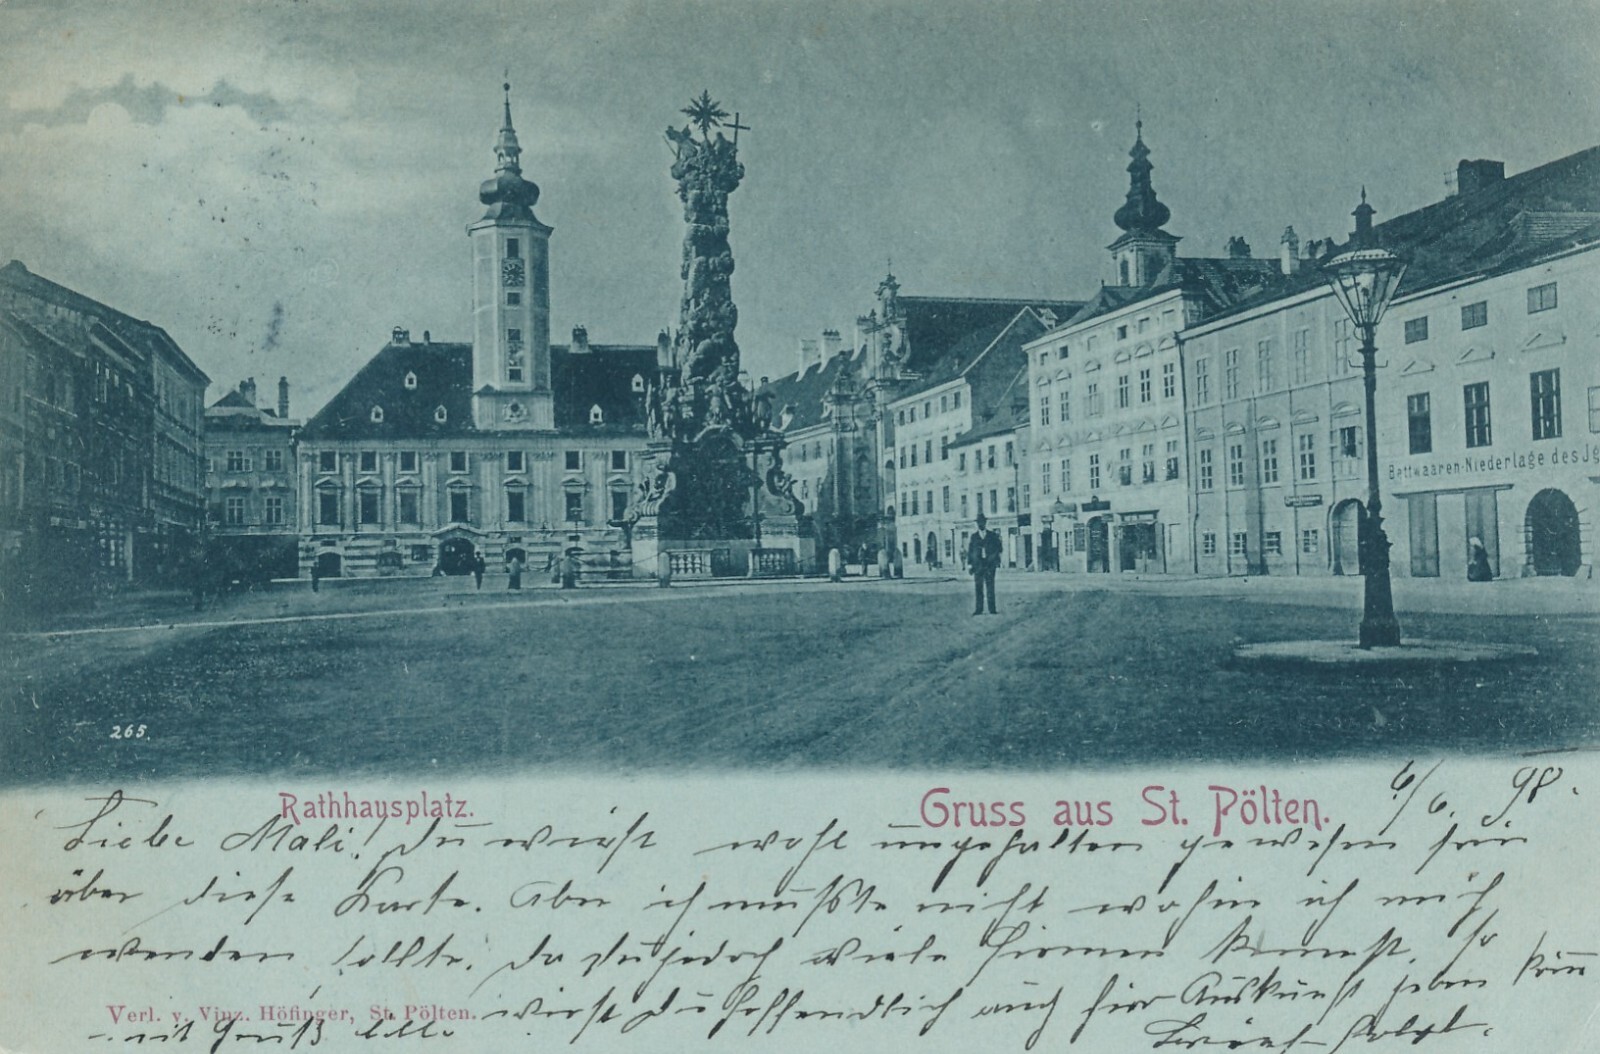 Bettwaaren-Niederlage des Jg
265.
Rathhausplatz.
Gruss aus St. Pölten.
6/6. 98.
Liebe Mali! Du wirst wohl ungehalten gewesen sein
über diese Karte. Aber ich mußte nicht wohin ich mich
wenden sollte. Da Du jedoch viele Firmen kennst, so
wirst Du hoffendlich auch hier Auskunft geben können
Verl. v. Vinz. Höfinger, St. Pölten.
mit Gruß
Brief folgt.